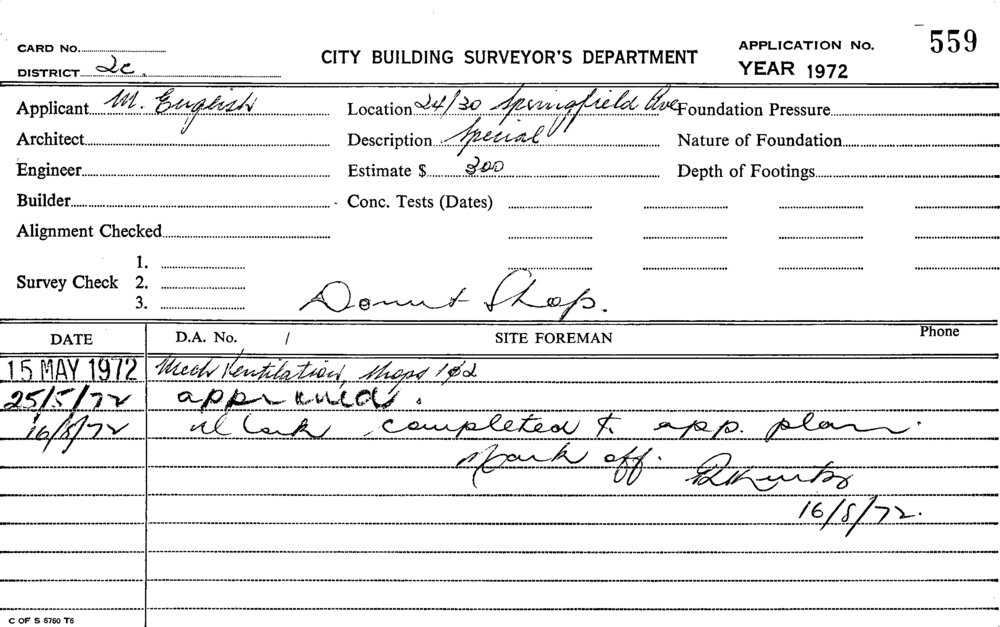 CARD No.
CITY BUILDING SURVEYOR'S DEPARTMENT
APPLICATION No. 559
DISTRICT 2c.
YEAR 1972
Applicant M. English
Location 24/30 Springfield Ave
Foundation Pressure
Architect
Description Special
Nature of Foundation
Engineer
Estimate $ 300
Depth of Footings
Builder
Conc. Tests (Dates)
Alignment Checked
Survey Check 1.
2.
3.
Donut Shop.
DATE D.A. No. / SITE FOREMAN Phone
15 MAY 1972 Mech Ventilation, shops 1 & 2
25/5/72 approved.
16/8/72 Work completed to app. plan.
Mark off.
16/8/72.
C OF S 5760 T6